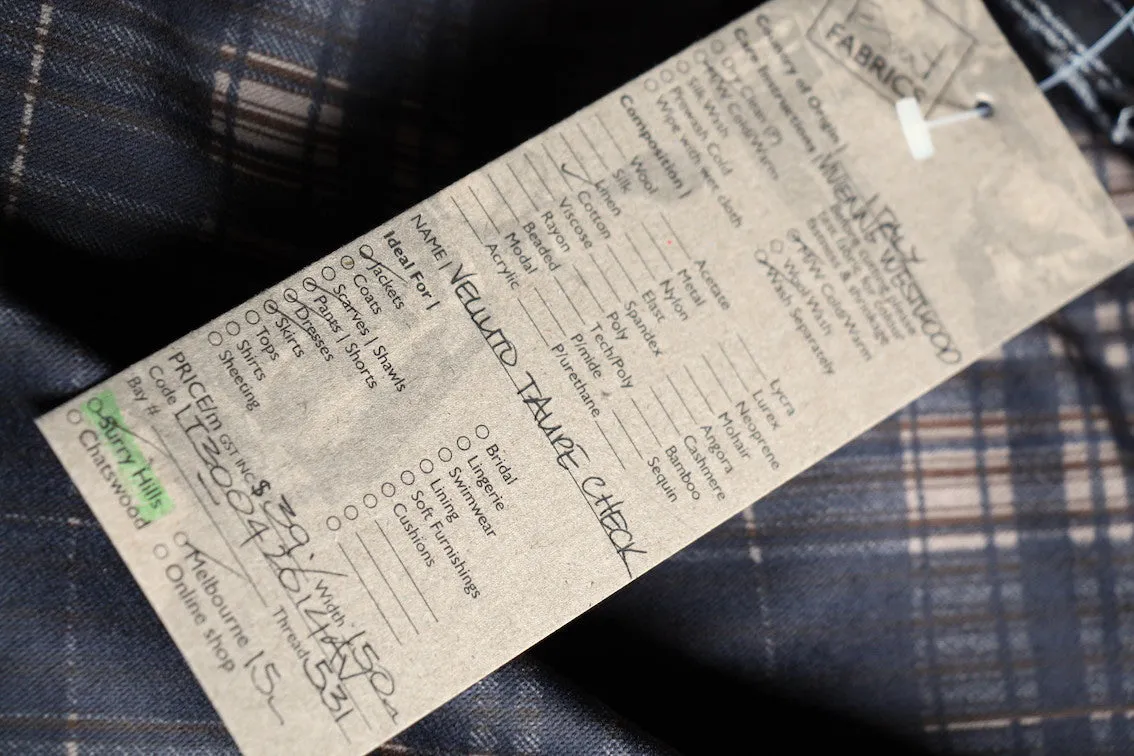 FABRICS
Country of Origin | ITALY
Care Instructions | VIVIENNE WESTWOOD
Dry Clean (P)
H/W Cold/Warm
Silk Wash
Prewash Cold
Wipe with wet cloth
Before cutting please
test (all) for colour
fastness & shrinkage
H/W Cold/Warm
Wool Wash
Wash Separately
Composition |
Wool
Silk
Linen
Cotton
Viscose
Rayon
Beaded
Modal
Acrylic
Acetate
Metal
Nylon
Elast
Spandex
Poly
Tech/Poly
P/mide
P/urethane
Lycra
Lurex
Neoprene
Mohair
Angora
Cashmere
Bamboo
Sequin
NAME | VELLUTO TAUPE CHECK
Ideal For |
Jackets
Coats
Scarves | Shawls
Pants | Shorts
Dresses
Skirts
Tops
Shirts
Sheeting
Bridal
Lingerie
Swimwear
Lining
Soft Furnishings
Cushions
PRICE/m GST INC $39 Width 150
Code LT30042014
Thread 531
Bay #
Surry Hills
Chatswood
Melbourne 15
Online shop